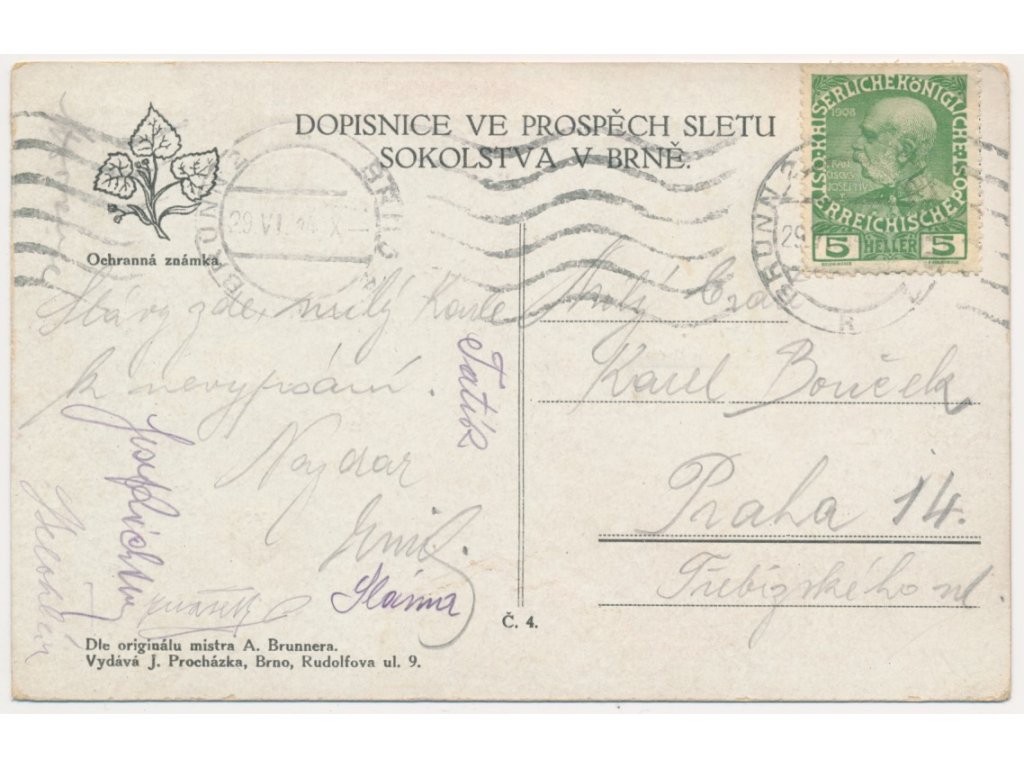 DOPISNICE VE PROSPĚCH SLETU
SOKOLSTVA V BRNĚ.
Ochranná známka.
KAISERLICHE KÖNIGLICHE
ÖSTERREICHISCHE POST
1908
5 HELLER 5
BRÜNN
29.VI.14
BRNO
BRÜNN
29
zde, milý Karle
k nevypsání.
Nazdar
Emil.
Tatík
Sláma
Milý
Karel Bouček
Praha 14.
Třebízského ul.
Č. 4.
Dle originálu mistra A. Brunnera.
Vydává J. Procházka, Brno, Rudolfova ul. 9.